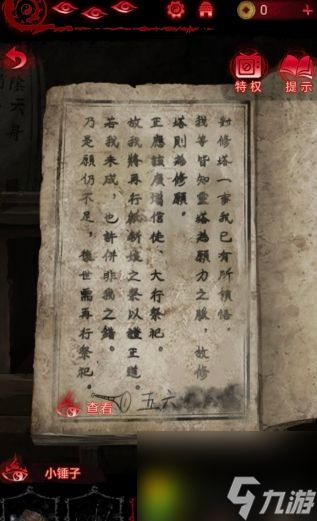 0
+
特权
提示
陰天子
對修塔一事我已有所領悟。
我等皆知靈塔為願力之脈，故修
塔則為修願。
正應該廣增信徒、大行祭祀。
故我將再行紙新娘之祭以證正道。
若我未成，也許併非我之錯。
乃是願仍不足，後世需再行祭祀。
查看
五六
小锤子
九游